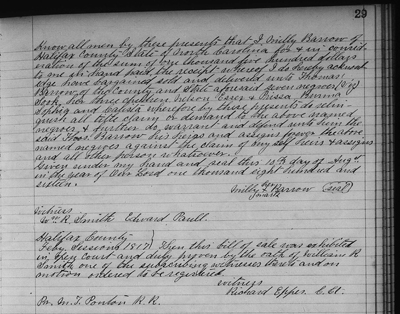 29
Know all men by these presents that I, Milly Barrow of
Halifax County & State of North Carolina for & in consid-
eration of the sum of one thousand five hundred dollars
to me in hand paid the receipt whereof I do hereby acknowl
edge have bargained sold and delivered unto Thomas
Barrow of the County and State aforesaid seven negroes (viz)
her three children Nelson and
Sophia and by these presents do relin-
quish all title claim or demand to the above named
negroes & further do warrant and defend unto him the
said Thos. Barrow his heirs and assigns forever the above
named negroes against the claim of my self heirs & assigns
and all other persons whatsoever.
Given under my hand and seal this day of Augt.
in the year of Our Lord one thousand eight hundred and
sixteen.
Milly her mark Barrow (seal)
Witness
Wm. R. Smith Edward Pull.
Halifax County
Feby Sessions 1817 } Then this bill of sale was exhibited
in open court and duly proven by the oath of William R
Smith one of the subscribing witnesses thereto and on
motion ordered to be registered.
Witness
Richard Eppes C.C.
Pr. M. T. Ponton R. R.